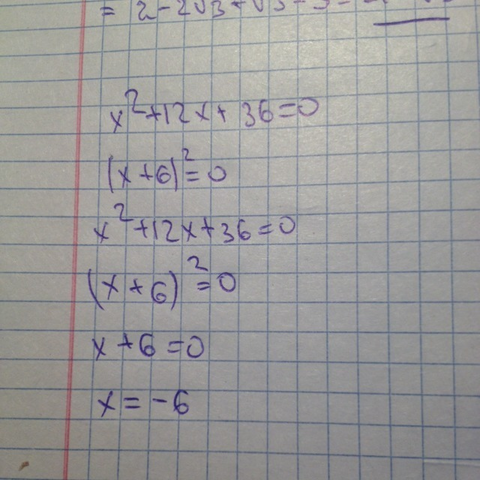 = 2-2√3+√3-3=
x²+12x+36=0
(x+6)²=0
x²+12x+36=0
(x+6)²=0
x+6=0
x=-6